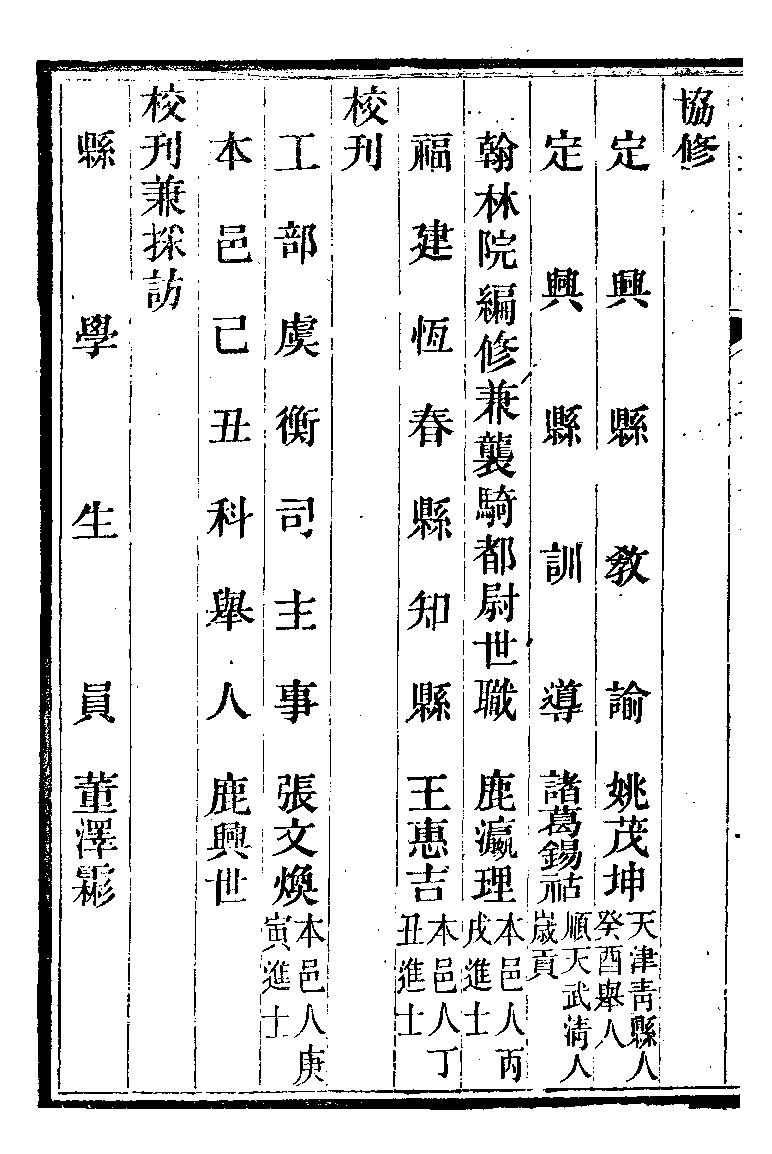 協修
定興縣教諭姚茂坤天津青縣人癸酉舉人
定興縣訓導諸葛錫祜順天武淸人歲貢
翰林院編修兼襲騎都尉世職鹿瀛理本邑人丙戌進士
福建恆春縣知縣王惠吉本邑人丁丑進士
校刊
工部虞衡司主事張文煥本邑人庚寅進士
本邑己丑科舉人鹿興世
校刊兼採訪
縣學生員董澤彰